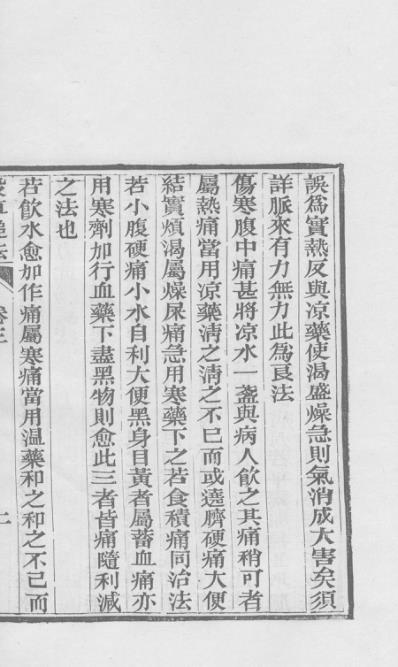 誤爲實熱反與凉藥使渴盛燥急則氣消成大害矣須
詳脈來有力無力此爲良法
傷寒腹中痛甚將凉水一盞與病人飮之其痛稍可者
屬熱痛當用涼藥淸之淸之不已而或遶臍硬痛大便
結實煩渴屬燥屎痛急用寒藥下之若食積痛同治法
若小腹硬痛小水自利大便黑身目黃者屬蓄血痛亦
用寒劑加行血藥下盡黑物則愈此三者皆痛隨利減
之法也
若飮水愈加作痛屬寒痛當用温藥和之和之不已而
卷三